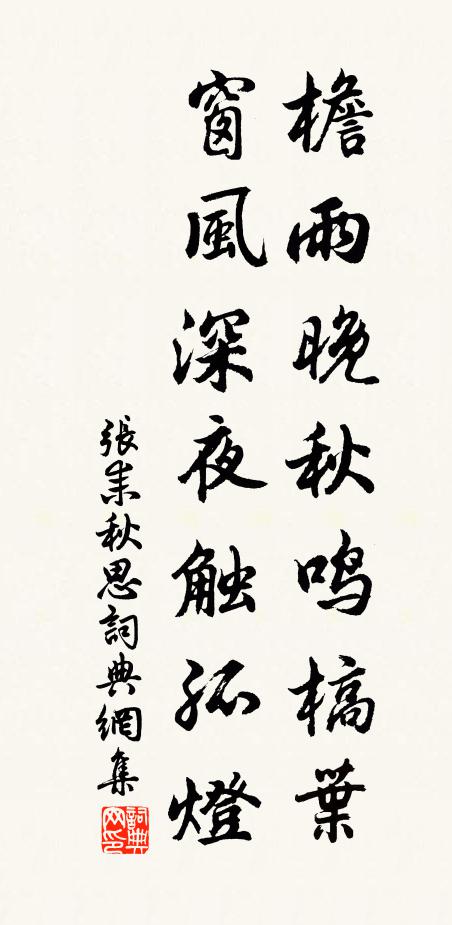 檐雨晚秋鸣槁葉
窗風深夜触孤燈
張耒秋思詞典網集
詞典网印